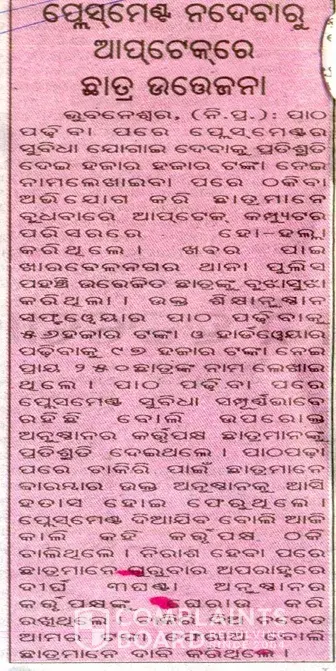 ପ୍ଲେସ୍‌ମେଣ୍ଟ ନଦେବାରୁ
ଆପ୍‌ଟେକ୍‌ରେ
ଛାତ୍ର ଉତ୍ତେଜନା
ଭୁବନେଶ୍ୱର, (ନି.ପ୍ର.): ପାଠ
ପଢ଼ିବା ପରେ ପ୍ଲେସ୍‌ମେଣ୍ଟର
ସୁବିଧା ଯୋଗାଇ ଦେବାକୁ ପ୍ରତିଶ୍ରୁତି
ଦେଇ ହଜାର ହଜାର ଟଙ୍କା ନେଇ
ନାମଲେଖାଇବା ପରେ ଠକିବା
ଅଭିଯୋଗ କରି ଛାତ୍ରମାନେ
ବୁଧବାରେ ଆପ୍‌ଟେକ୍ କମ୍ପ୍ୟୁଟର
ପରିସରରେ ହୋ-ହଲ୍ଲା
କରିଥିଲେ । ଖବର ପାଇ
ଖାରବେଳନଗର ଥାନା ପୁଲିସ
ପହଞ୍ଚି ଉତ୍ତେଜିତ ଛାତ୍ରଙ୍କୁ ବୁଝାସୁଝା
କରିଥିଲା । ଉକ୍ତ ଶିକ୍ଷାନୁଷ୍ଠାନ
ସଫ୍ଟୱେୟାର ପାଠ ପଢ଼ିବାକୁ
୫୬ହଜାର ଟଙ୍କା ଓ ହାର୍ଡୱେୟାର
ପଢ଼ିବାକୁ ୯୭ ହଜାର ଟଙ୍କା ନେଇ
ପ୍ରାୟ ୨୫୦ଛାତ୍ରଙ୍କ ନାମ ଲେଖାଇ
ଥିଲେ । ପାଠ ପଢ଼ିବା ପରେ
ପ୍ଲେସମେଣ୍ଟ ସୁବିଧା ସମ୍ପୂର୍ଣ୍ଣଭାବେ
ରହିଛି ବୋଲି ଉପରୋକ୍ତ
ଅନୁଷ୍ଠାନର କର୍ତ୍ତୃପକ୍ଷ ଛାତ୍ରମାନଙ୍କୁ
ପ୍ରତିଶ୍ରୁତି ଦେଇଥିଲେ । ପାଠପଢ଼ା
ପରେ ଚାକିରି ପାଇଁ ଛାତ୍ରମାନେ
ବାରମ୍ବାର ଉକ୍ତ ଅନୁଷ୍ଠାନକୁ ଆସି
ହତାସ ହୋଇ ଫେରୁଥିଲେ ।
ପ୍ଲେସ୍‌ମେଣ୍ଟ ଦିଆଯିବ ବୋଲି ଆଜି
କାଲି କହି କର୍ତ୍ତୃପକ୍ଷ ଠକି
ଚାଲିଥିଲେ । ନିରାଶ ହେବା ପରେ
ଛାତ୍ରମାନେ ଅପରାହ୍ନରେ
ଦୀର୍ଘ ୩ଘଣ୍ଟା ଅନୁଷ୍ଠାନର
ବୋଲି
ଛାତ୍ରମାନେ ଦାବି କରିଥିଲେ ।
COMPLAINTS
BOARD